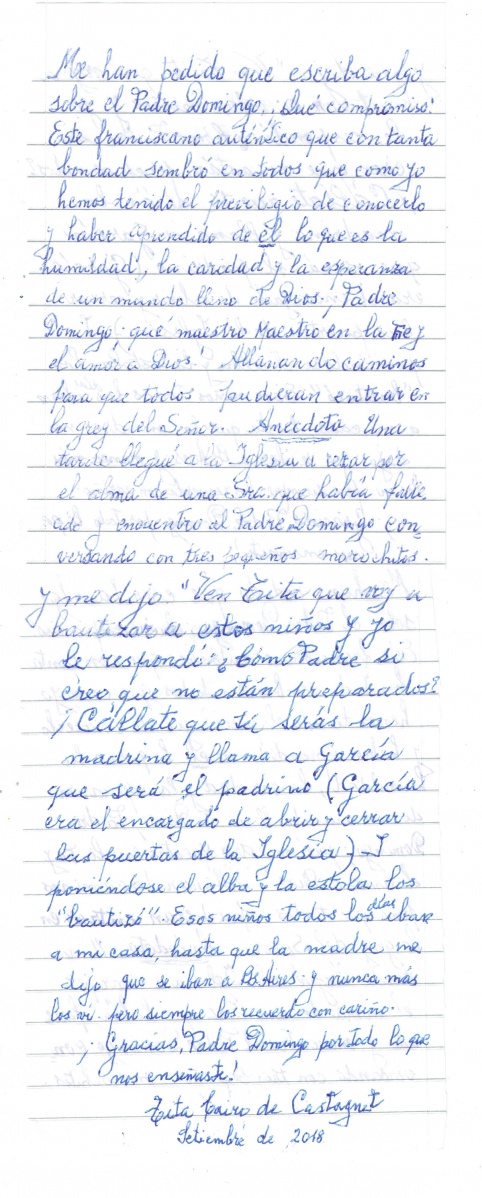 Me han pedido que escriba algo
sobre el Padre Domingo, ¡Qué compromiso!
Este franciscano auténtico que con tanta
bondad sembró en todos que como yo
hemos tenido el previligio de conocerlo
y haber aprendido de él lo que es la
humildad, la caridad y la esperanza
de un mundo lleno de Dios. ¡Padre
Domingo, que maestro Maestro en la Fe y
el amor a Dios! Allanando caminos
para que todos pudieran entrar en
la grey del Señor. Anécdota Una
tarde llegué a la Iglesia a rezar por
el alma de una Sra. que había falle
cido y encuentro al Padre Domingo con-
versando con tres pequeños morochitos.
y me dijo "Ven Tita que voy a
bautizar a estos niños y yo
le respondó: ¿Cómo Padre si
creo que no están preparados?
¡Cállate que tú serás la
madrina y llama a García
que será el padrino (García
era el encargado de abrir y cerrar
las puertas de la Iglesia) - I
poniéndose el alba y la estola los
"bautizó". Esos niños todos los días iban
a mi casa, hasta que la madre me
dijo que se iban a Bs. Aires y nunca más
los vi. pero siempre los recuerdo con cariño.
¡Gracias, Padre Domingo por todo lo que
nos enseñaste!
Tita Cairo de Castagnet
Setiembre de 2018